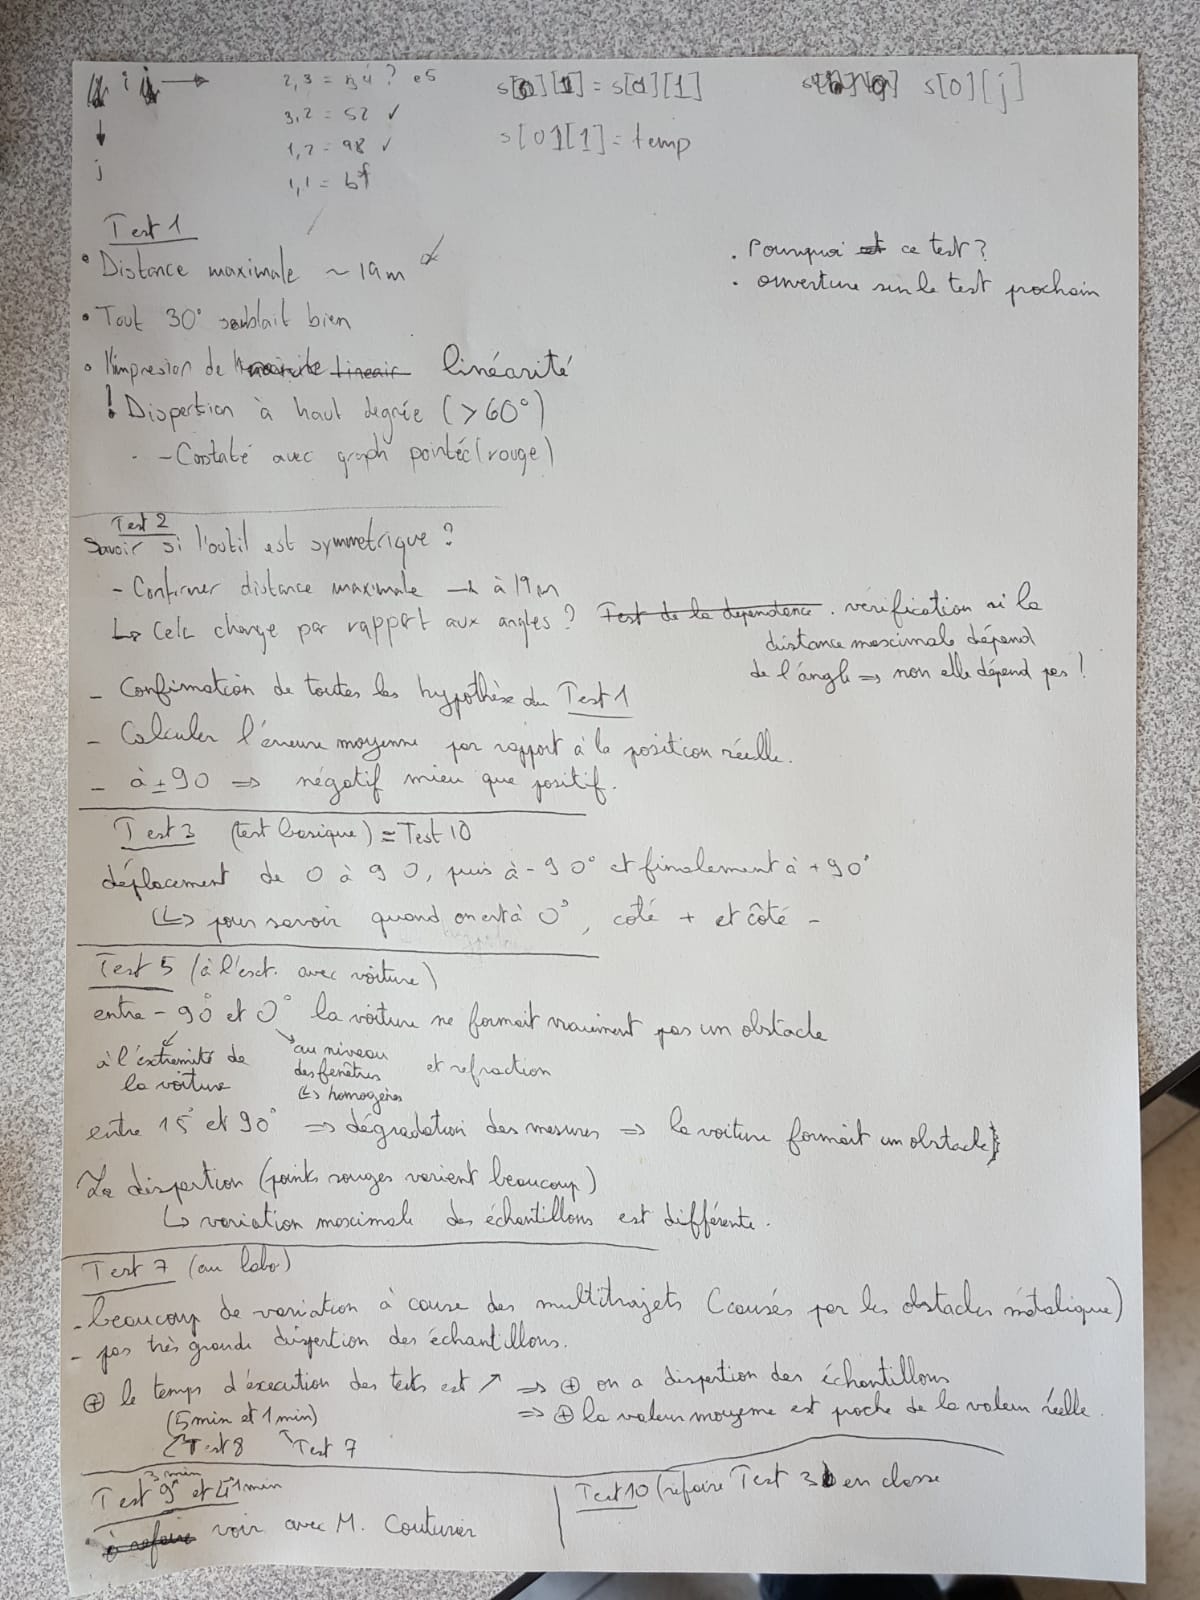 i j →
↓
j
2,3 = ? e5
3,2 = 52 ✓
1,2 = 98 ✓
1,1 = bf
s[0][1] = s[0][1]
s[0][1] = temp
s[0][j]
Test 1
• Distance maximale ~ 19m
• Tout 30° semblait bien
• l'impresion de lineair linéarité
! Dispertion à haut degrée (>60°)
- Costaté avec graph pointéc (rouge)
. Pourquoi et ce test?
. ouverture sur le test prochain
Test 2
Savoir si l'outil est symmetrique?
- Confirmer distance maximale → à 19m
↳ Cela change par rapport aux angles?
Test de la dependance . vérification si la
distance maximale dépend
de l'angle => non elle dépend pas!
- Confirmation de toutes les hypothèse du Test 1
- Calculer l'erreure moyenne par rapport à la position réelle.
- à ±90 => négatif mieu que positif.
Test 3 (test basique) = Test 10
déplacement de 0 à 90, puis à -90° et finalement à +90°
(↳ pour savoir quand on est à 0°, coté + et côté -
Test 5 (à l'ext. avec voiture)
entre -90° et 0° la voiture ne formait vraiment pas un obstacle
à l'extremité de
la voiture
au niveau
des fenêtres
↳ homogènes
et refraction
entre 15° et 90° => dégradation des mesures => la voiture formait un obstacle
La dispertion (points rouges varient beaucoup)
↳ variation maximale des échantillons est différente.
Test 7 (au labo)
- beaucoup de variation à cause des multitrajets (causés par les obstacles métalique)
- pas très grande dispertion des échantillons.
⊕ le temps d'éxecution des tests est ↗ => ⊕ on a dispertion des échantillons
(5min et 1min) => ⊕ la valeur moyenne est proche de la valeur réelle.
Test 8 Test 7
Test 9 3min et 4 1min
à refaire voir avec M. Couturier
Test 10 (refaire Test 3 en classe